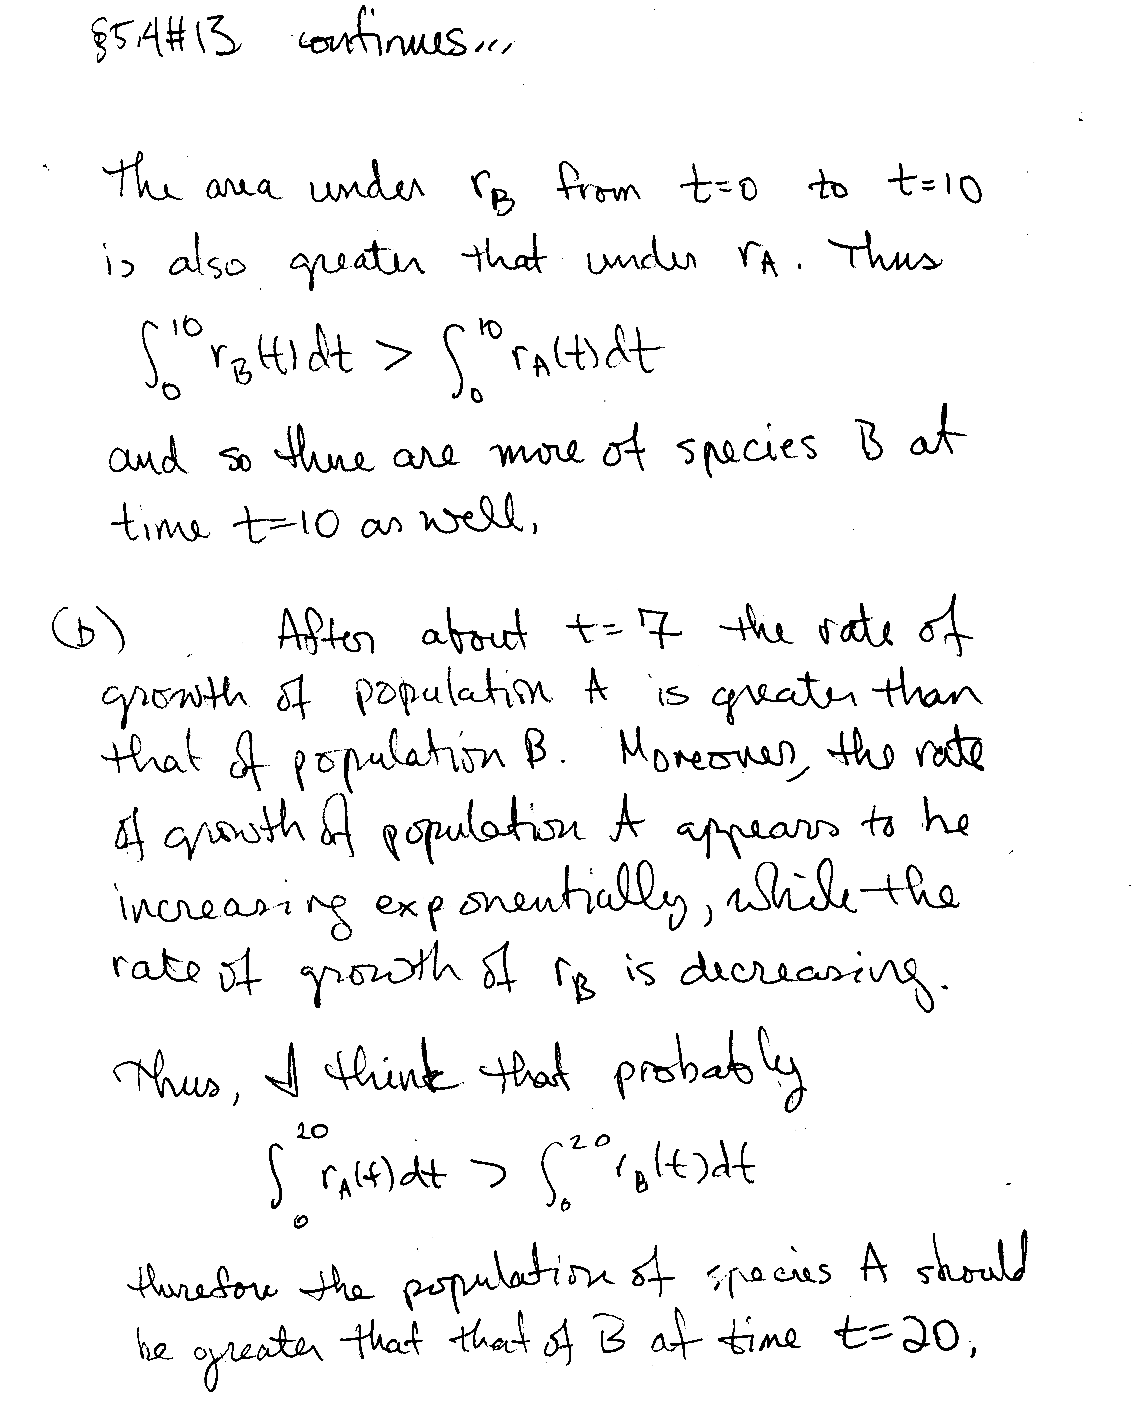 §5.4#13 continues...
The area under r_B from t=0 to t=10
is also greater that under r_A. Thus
∫_0^10 r_B(t)dt > ∫_0^10 r_A(t)dt
and so there are more of species B at
time t=10 as well.
(b) After about t=7 the rate of
growth of population A is greater than
that of population B. Moreover, the rate
of growth of population A appears to be
increasing exponentially, while the
rate of growth of r_B is decreasing.
Thus, I think that probably
∫_0^20 r_A(t)dt > ∫_0^20 r_B(t)dt
therefore the population of species A should
be greater that that of B at time t=20.